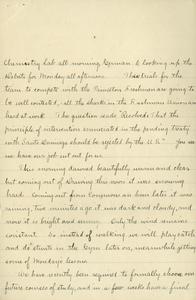 Chemistry Lab all morning, German & looking up the
Debate for Monday all afternoon. The trials for the
team to compete with the Princeton Freshman are going to
be well contested, all the sharks in the Freshman Union are
hard at work. The question reads "Resolved: that the
principle of intervention enunciated in the pending Treaty
with Santo Domingo should be rejected by the U.S." You see
we have our job cut out for us.
This morning dawned beautifully warm and clear
but coming out of Dining this noon it was snowing
hard. Coming out from Luncheon an hour later it was
raining, two minutes ago it was dark and cloudy, and
now it is bright and sunny. Only the wind remains
constant. So instead of walking we will play catch
and do stunts in the Gym later on, meanwhile getting
some of Monday's lessons.
We have recently been required to formally choose our
future courses of study, and in a few weeks have a fixed